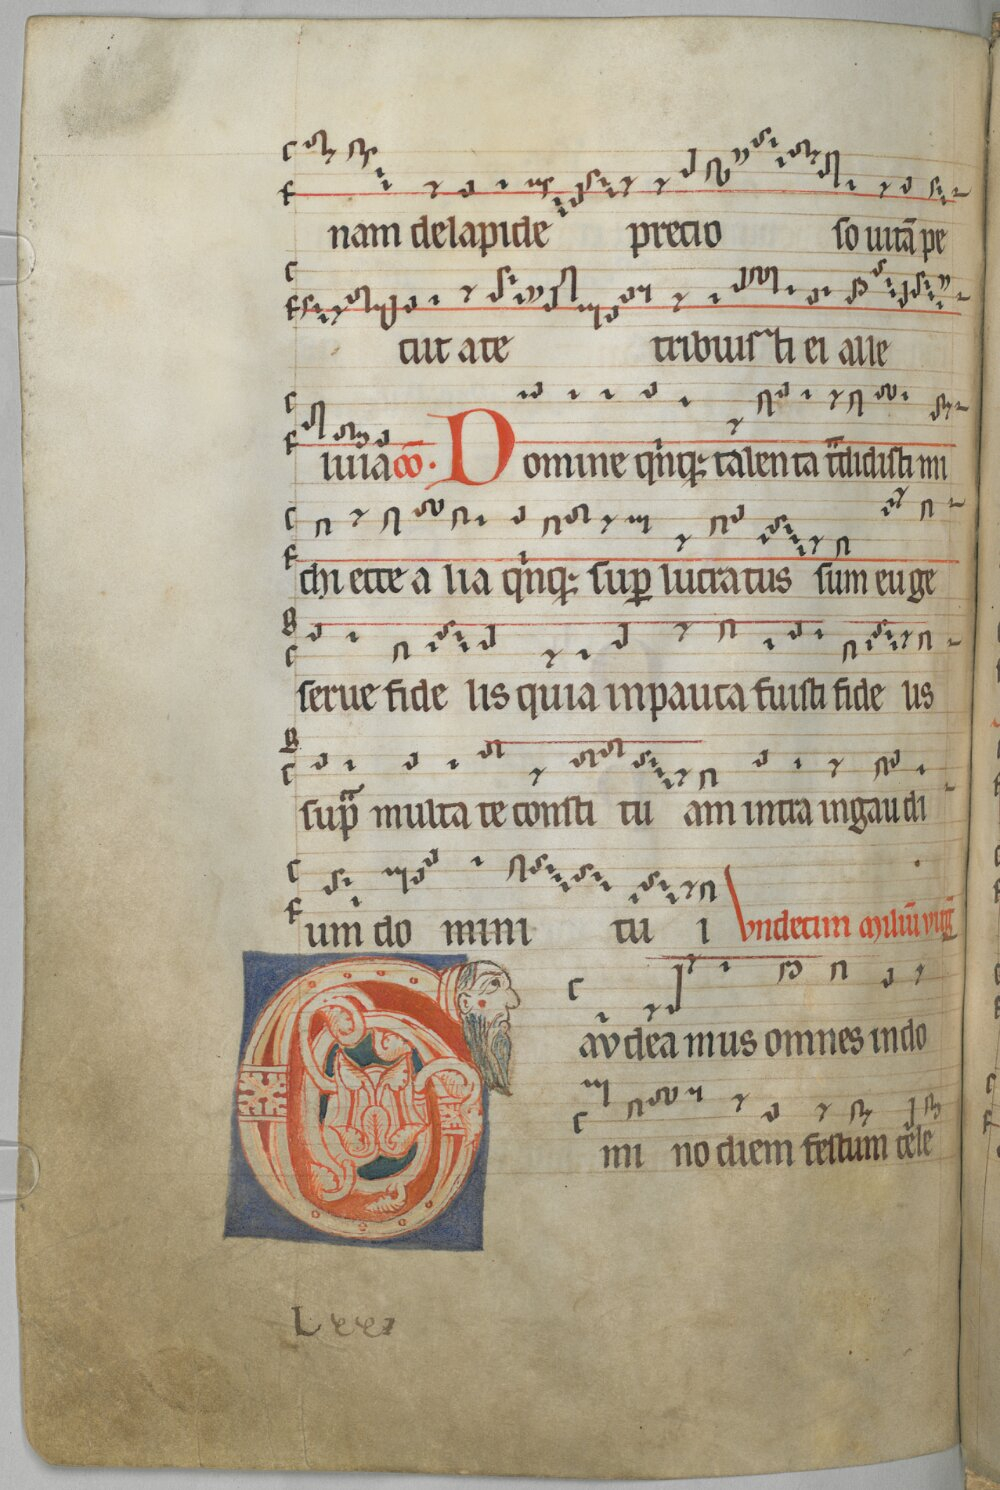 nam de lapide precio so uitā pe
ciit a te tribuisti ei alle
luia co. Domine qinq; talenta tdidisti mi
chi ecce a lia qinq; sup lucratus sum euge
serue fide lis quia in pauca fuisti fide lis
sup multa te consti tu am intra in gaudi
um do mini tu i Vndecim miliū uirg
Gaudeamus omnes in do
mi no diem festum cele